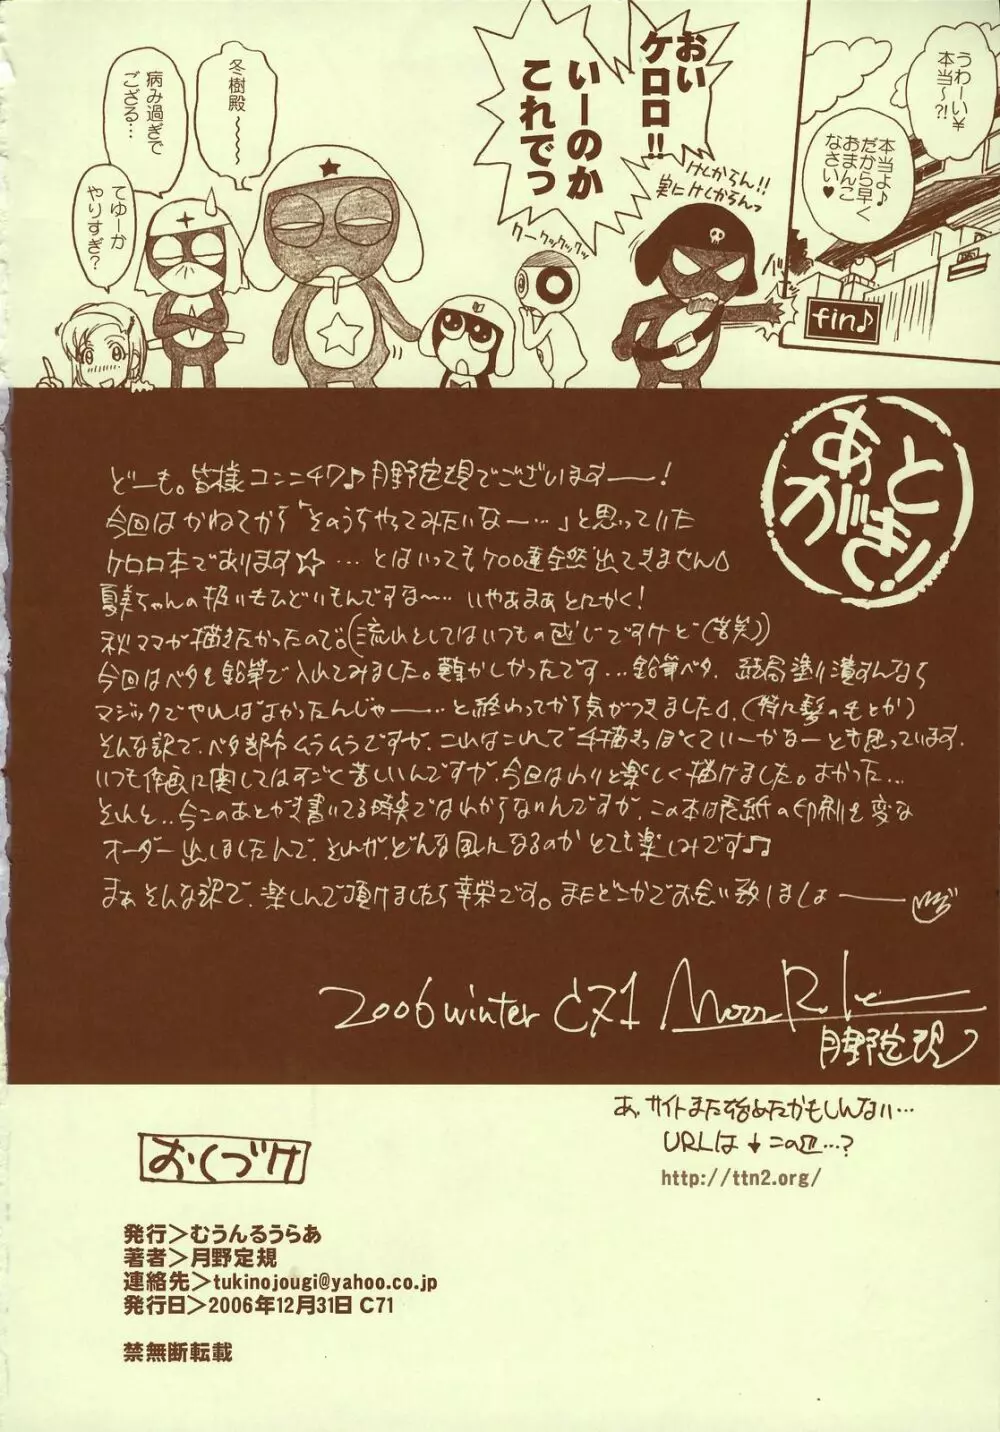 うわーい¥
本当〜?!
fin♪
おい
ケロロ!!
いーのか
これでっ
けしからん!!
実にけしからんっ
クークックックッ
冬樹殿〜
病み過ぎで
ござる…
てゆーか
やりすぎ?
あとがき!
どーも。皆様コンニチワ♪月野定規でございますー!
今回はかねてから「そのうちやってみたいなー…」と思っていた
ケロロ本であります☆…とはいってもケロロ達全然出てきません
夏美ちゃんの扱いもひどいもんですな〜…いやあまぁとにかく!
秋ママが描きたかったので。(流れとしてはいつもの感じですけど(苦笑))
今回はベタを鉛筆で入れてみました。難かしかったです…鉛筆ベタ、結局塗り潰すんなら
マジックでやればよかったんじゃー…と終わってから気がつきました。(特に髪のもとか)
そんな訳で、ベタ部分ムラムラですが、これはこれで手描きっぽくていーかなーとも思っています。
いつも作画に関してはすごく苦しいんですが、今回はわりと楽しく描けました。よかった…
それと‥今このあとがき書いてる時点ではわからないんですが、この本は表紙の印刷を変な
オーダー出しましたんで、それが、どんな風になるのかとても楽しみです♪
まぁそんな訳で、楽しんで頂けましたら幸栄です。またどこかでお会い致しましょー
2006 winter C71
月野定規
あ、サイトまた始めたかもしんない…
URLは↓この辺…?
http://ttn2.org/
おくづけ
発行＞むうんるうらあ
著者＞月野定規
連絡先＞tukinojougi@yahoo.co.jp
発行日＞2006年12月31日 C71
禁無断転載